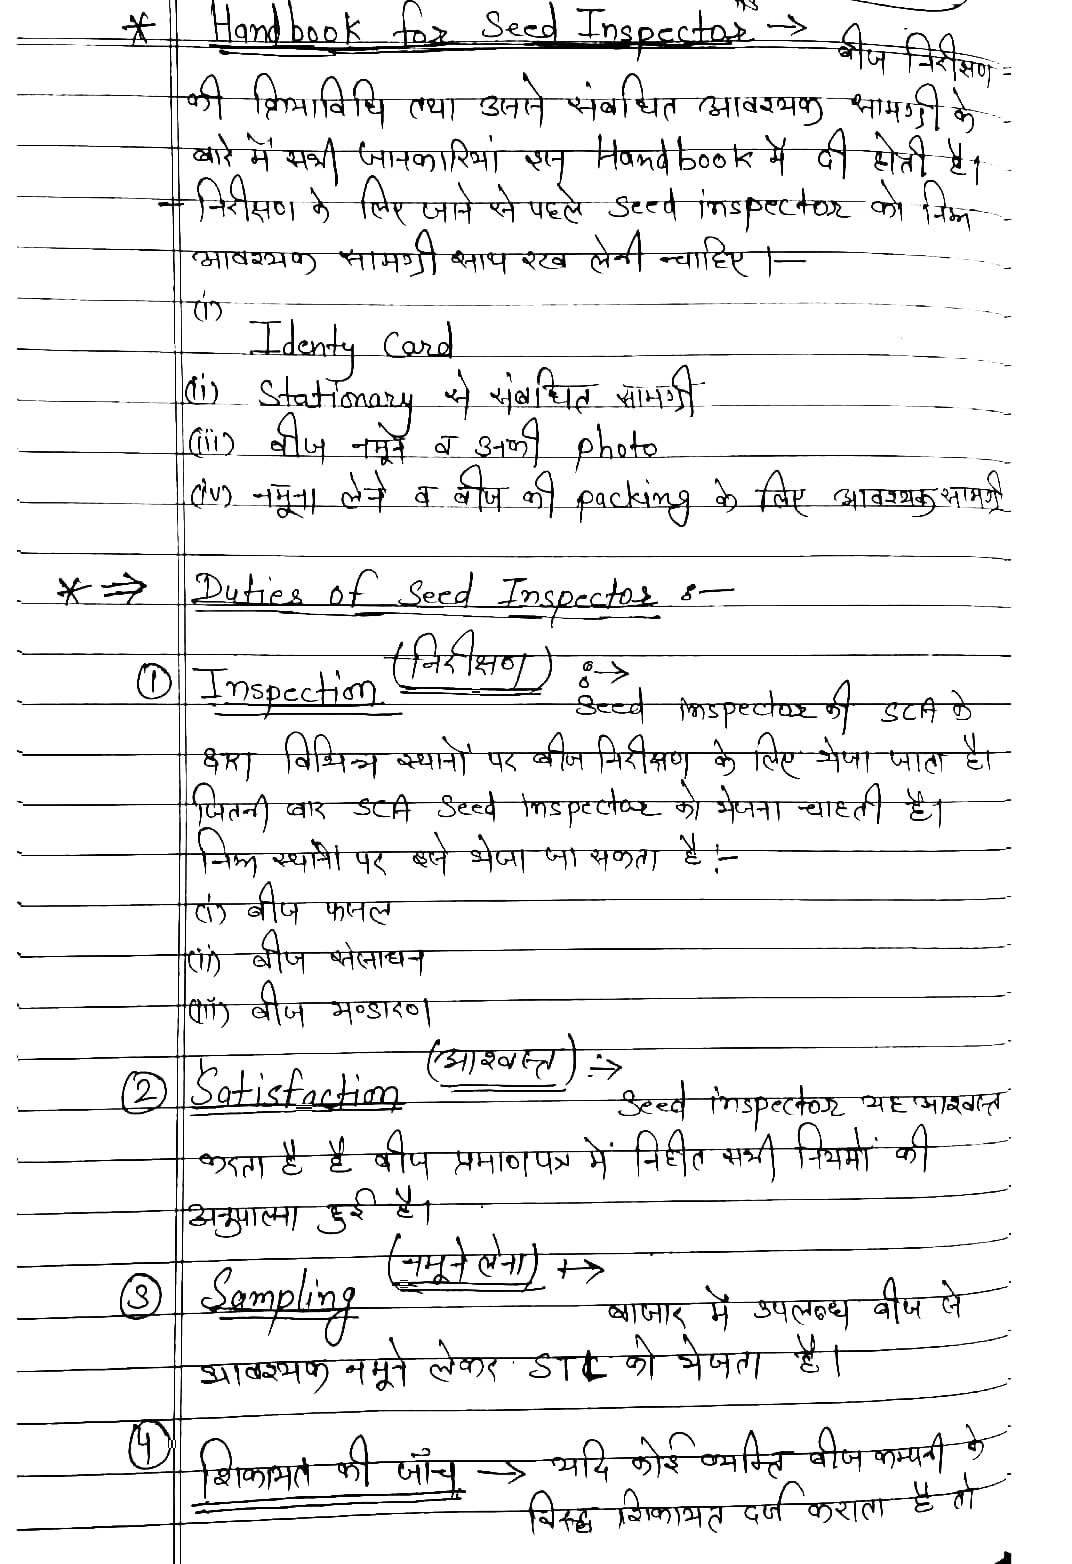 * Handbook for Seed Inspector → बीज निरीक्षण
की क्रियाविधि तथा उससे संबधित आवश्यक सामग्री के
बारे में सभी जानकारियां इस Handbook में दी होती है।
- निरीक्षण के लिए जाने से पहले seed inspector को निम्न
आवश्यक सामग्री साथ रख लेनी चाहिए।-
(i)
Identy Card
(ii) Stationary से संबधित सामग्री
(iii) बीज नमूने व उनकी photo
(iv) नमूना लेने व बीज की packing के लिए आवश्यक सामग्री
* ⇒ Duties of Seed Inspector :-
① Inspection (निरीक्षण) :→
Seed inspector की SCA के
द्वारा विभिन्न स्थानों पर बीज निरीक्षण के लिए भेजा जाता है।
जितनी बार SCA Seed inspector को भेजना चाहती है।
निम्न स्थानों पर इसे भेजा जा सकता है :-
(i) बीज फसल
(ii) बीज संसाधन
(iii) बीज भण्डारण
② Satisfaction (आश्वस्त) :→
Seed inspector यह आश्वस्त
करता है है बीज प्रमाणपत्र में निहीत सभी नियमों की
अनुपालना हुई है।
③ Sampling (नमूने लेना) →
बाजार में उपलब्ध बीज से
आवश्यक नमूने लेकर STL को भेजता है।
④ शिकायत की जाँच → यदि कोई व्यक्ति बीज कम्पनी के
विरुद्ध शिकायत दर्ज कराता है तो